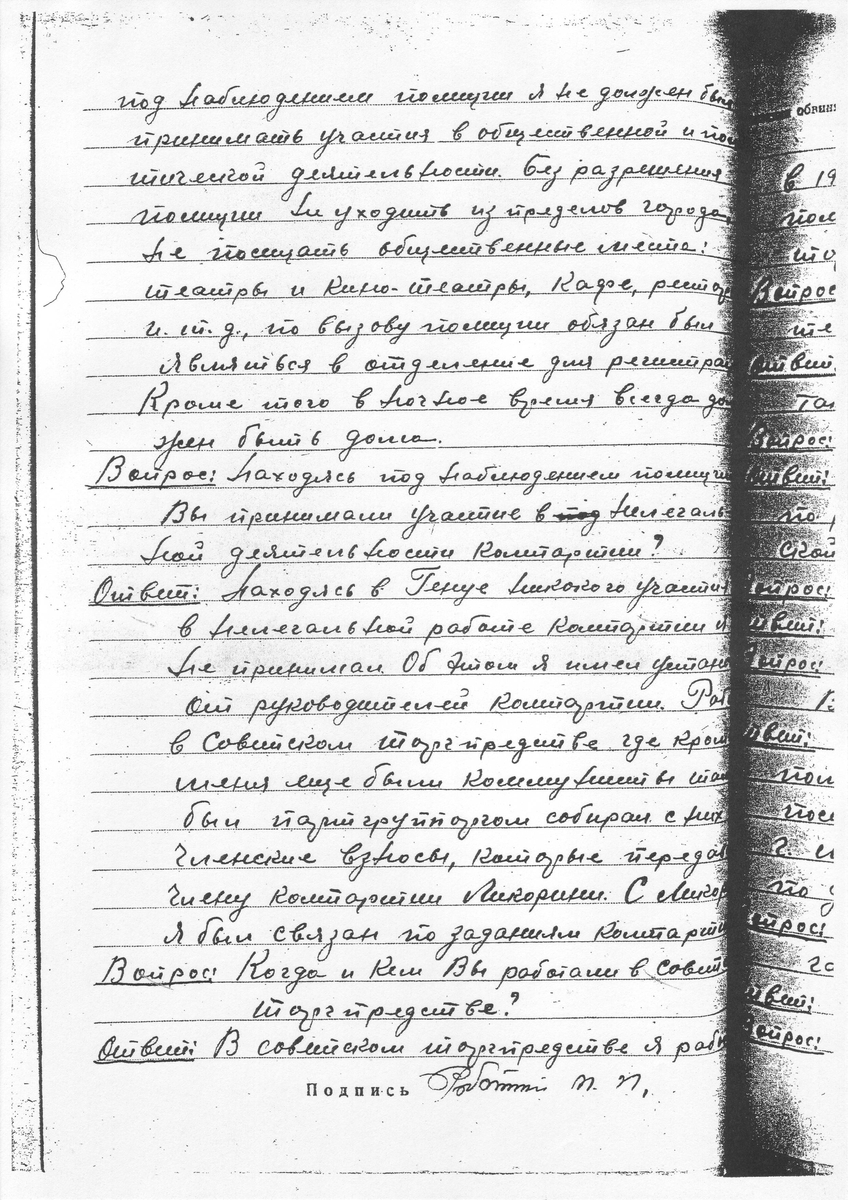 под наблюдением полиции я не должен был
принимать участия в общественной и пол
тической деятельности. Без разрешения
полиции не уходить из пределов города,
не посещать общественные места:
театры и кино-театры, кафе, рестор
и т.д., по вызову полиции обязан был
являться в отделение для регистрац
Кроме того в ночное время всегда до
жен быть дома.
Вопрос: Находясь под наблюдением полиции
Вы принимали участие в под нелегаль
ной деятельности компартии?
Ответ: Находясь в Генуе никокого участи
в нелегальной работе компартии я
не принимал. Об этом я имел устан
от руководителей компартии. Раб
в Советском торгпредстве где кром
меня еще были коммунисты там
был партгруппоргом собирал с них
членские взносы, которые передав
члену компартии Ликорини. С Ликор
я был связан по заданиям компарти
Вопрос: Когда и кем Вы работали в совет
торгпредстве?
Ответ: В советском торгпредстве я рабо
Подпись Роботти П. П.
обвин
в 19
пол
Вопрос
Ответ:
Вопрос:
Ответ:
по
ской
Вопрос:
Ответ:
Вопрос:
Ответ:
пол
посе
г. и
по
Вопрос:
Ответ:
Вопрос: